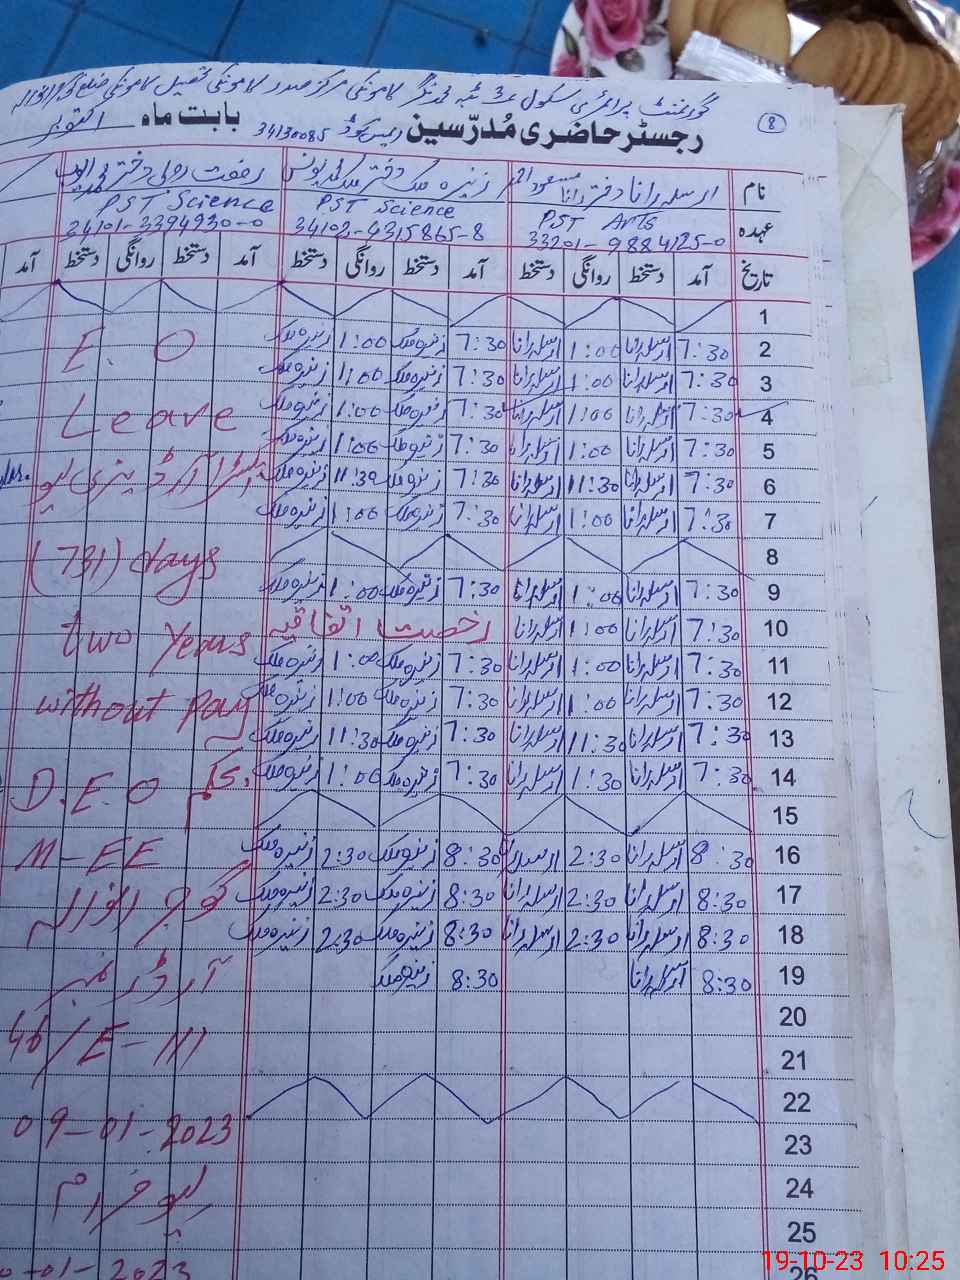 گورنمنٹ پرائمری سکول نمبر 3 ٹبہ محمد نگر کامونکی مرکز صدر کامونکی تحصیل کامونکی ضلع گوجرانوالہ
8
رجسٹر حاضری مُدرّسین ایمس کوڈ 34130085 بابت ماہ اکتوبر
نام ارسلہ رانا دختر رانا مسعود زنیرہ ملک دختر ملک محمد یونس رفعت دختر محمد ایوب
عہدہ PST Arts PST Science PST Science
33201-9884125-0 34102-4315865-8 34101-3394930-0
تاریخ آمد دستخط روانگی دستخط آمد دستخط روانگی دستخط آمد دستخط روانگی دستخط آمد
1
2 7:30 ارسلہ رانا 1:00 ارسلہ رانا 7:30 زنیرہ ملک 1:00 زنیرہ ملک E.O
3 7:30 ارسلہ رانا 1:00 ارسلہ رانا 7:30 زنیرہ ملک 1:00 زنیرہ ملک
4 7:30 ارسلہ رانا 1:00 ارسلہ رانا 7:30 زنیرہ ملک 1:00 زنیرہ ملک Leave
5 7:30 ارسلہ رانا 1:00 ارسلہ رانا 7:30 زنیرہ ملک 1:00 زنیرہ ملک
6 7:30 ارسلہ رانا 11:30 ارسلہ رانا 7:30 زنیرہ ملک 11:30 زنیرہ ملک ایکسٹرا آرڈینری لیو
7 7:30 ارسلہ رانا 1:00 ارسلہ رانا 7:30 زنیرہ ملک 1:00 زنیرہ ملک
8 (731) days
9 7:30 ارسلہ رانا 1:00 ارسلہ رانا 7:30 زنیرہ ملک 1:00 زنیرہ ملک
10 7:30 ارسلہ رانا 1:00 ارسلہ رانا رخصت اتفاقیہ two years
11 7:30 ارسلہ رانا 1:00 ارسلہ رانا 7:30 زنیرہ ملک 1:00 زنیرہ ملک
12 7:30 ارسلہ رانا 1:00 ارسلہ رانا 7:30 زنیرہ ملک 1:00 زنیرہ ملک without pay
13 7:30 ارسلہ رانا 11:30 ارسلہ رانا 7:30 زنیرہ ملک 11:30 زنیرہ ملک
14 7:30 ارسلہ رانا 1:30 ارسلہ رانا 7:30 زنیرہ ملک 1:00 زنیرہ ملک بحکم D.E.O
15
16 8:30 ارسلہ رانا 2:30 ارسلہ رانا 8:30 زنیرہ ملک 2:30 زنیرہ ملک M-EE
17 8:30 ارسلہ رانا 2:30 ارسلہ رانا 8:30 زنیرہ ملک 2:30 زنیرہ ملک گوجرانوالہ
18 8:30 ارسلہ رانا 2:30 ارسلہ رانا 8:30 زنیرہ ملک 2:30 زنیرہ ملک
19 8:30 ارسلہ رانا 8:30 زنیرہ ملک آرڈر نمبر
20
21 46/E-III
22
23 09-01-2023
24 لیو فرام
25
26 -01-2023
19-10-23 10:25